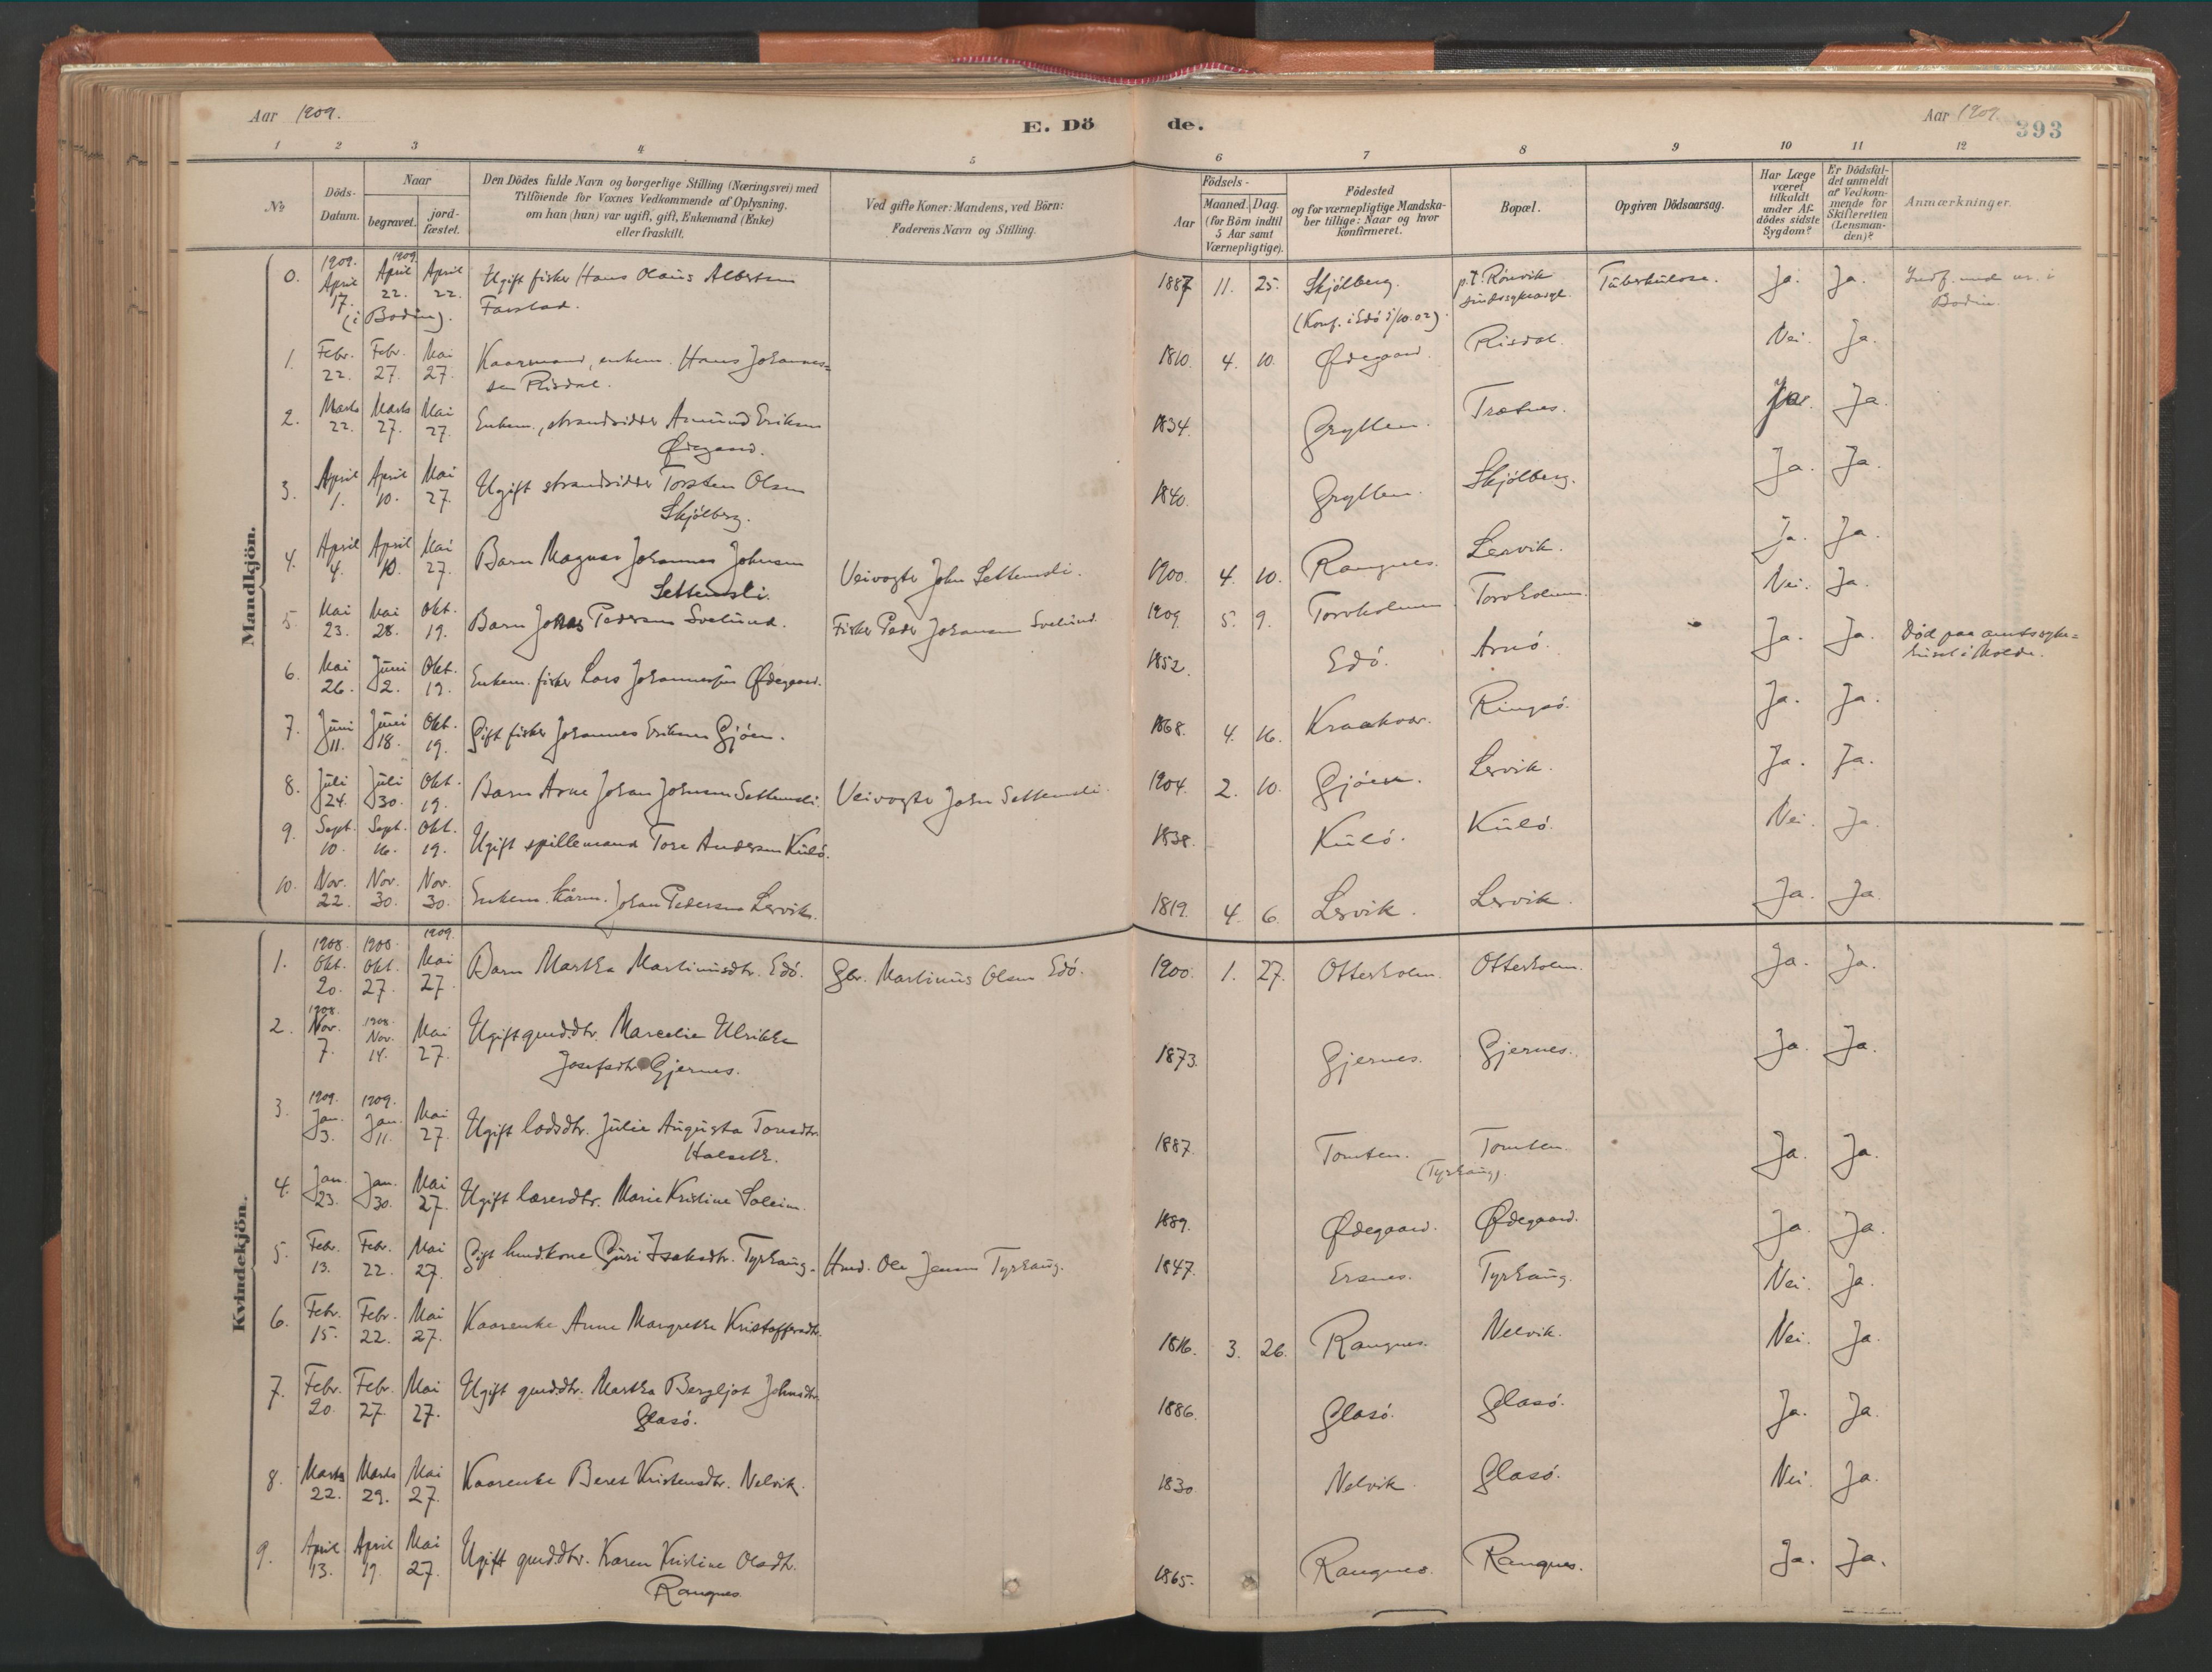 Aar 1909.
E. Dö de.
Aar 1909.
393
1 2 3 4 5 6 7 8 9 10 11 12
№
Döds-Datum.
Naar
begravet.
jord-fæstet.
Den Dödes fulde Navn og borgerlige Stilling (Næringsvei) med
Tilföiende for Voxnes Vedkommende af Oplysning,
om han (hun) var ugift, gift, Enkemand (Enke)
eller fraskilt.
Ved gifte Koner: Mandens, ved Börn:
Faderens Navn og Stilling.
Födsels-
Aar
Maaned. Dag.
(for Börn indtil
5 Aar samt
Værnepligtige).
Födested
og for værnepligtige Mandska-
ber tillige: Naar og hvor
konfirmeret.
Bopæl.
Opgiven Dödsaarsag.
Har Læge
været
tilkaldt
under Af-
dödes sidste
Sygdom?
Er Dödsfal-
det anmeldt
af Vedkom-
mende for
Skifteretten
(Lensman-
den)?
Anmærkninger.
Mandkjön.
0. 1909. April 17. (i Bodin). 1909 April 22. April 22. Ugift fisker Hans Olaus Albertsen
Farstad. 1887 11. 25. Skjølberg. (Konf. i Edö /10.02). p.t. Rönvik sindssykeasyl. Tuberkulose. Ja. Ja. Indf. med nr. i
Bodin.
1. Febr. 22. Febr. 27. Mai 27. Kaarmand, enkem. Hans Johannes=
sen Risdal. 1810. 4. 10. Ødegaard. Risdal. Nei. Ja.
2. Marts 22. Marts 27. Mai 27. Enkem., strandsidder Amund Eriksen
Ødegaard. 1834. Gryllen. Trætnes. Ja. Ja.
3. April 1. April 10. Mai 27. Ugift strandsidder Torsten Olsen
Skjølberg. 1840. Gryllen. Skjølberg. Ja. Ja.
4. April 4. April 10. Mai 27. Barn Magnar Johannes Johnsen
Settemsli. Veivogter John Settemsli. 1900. 4. 10. Rangnes. Lervik. Ja. Ja.
5. Mai 23. Mai 28. Okt. 19. Barn Johas Pedersen Svelund. Fisker Peder Johansen Svelund. 1909. 5. 9. Torvholmen Torvholmen. Nei. Ja.
6. Mai 26. Juni 2. Okt. 19. Enkem. fisker Lars Johannessen Ødegaard. 1852. Edö. Arnö. Ja. Ja. Död paa amtssyke=
huset i Molde.
7. Juni 11. Juni 18. Okt. 19. Gift fisker Johannes Eriksen Gjöen. 1868. 4. 16. Kraakvær. Ringsö. Ja. Ja.
8. Juli 24. Juli 30. Okt. 19. Barn Arne Johan Johnsen Settemsli. Veivogter John Settemsli. 1904. 2. 10. Gjöen. Lervik. Ja. Ja.
9. Sept. 10. Sept. 16. Okt. 19. Ugift spillemand Tore Andersen Kulö. 1838. Kulö. Kulö. Nei. Ja.
10. Nov. 22. Nov. 30. Nov. 30. Enkem. kårm. Johan Pedersen Lervik. 1819. 4. 6. Lervik. Lervik. Ja. Ja.
Kvindekjön.
1. 1908. Okt. 20. 1908. Okt. 27. 1909. Mai 27. Barn Martha Martinusdtr. Edö. Gbr. Martinus Olsen Edö. 1900. 1. 27. Otterholm. Otterholm. Ja. Ja.
2. 1908. Nov. 7. 1908. Nov. 14. Mai 27. Ugift gmd.dtr. Marcelie Ulrikke
Josefsdtr Gjernes. 1873. Gjernes. Gjernes. Ja. Ja.
3. 1909. Jan. 3. 1909. Jan. 11. Mai 27. Ugift lodsdtr. Julie Augusta Toresdtr.
Holseth. 1887. Tomten. Tomten. (Tyrhaug). Ja. Ja.
4. Jan. 23. Jan. 30. Mai 27. Ugift lærerdtr. Marie Kristine Soleim. 1889. Ødegaard. Ødegaard. Ja. Ja.
5. Febr. 13. Febr. 22. Mai 27. Gift husmdkone Guri Isaksdtr. Tyrhaug. Husmd. Ole Jensen Tyrhaug. 1847. Ersnes. Tyrhaug. Nei. Ja.
6. Febr. 15. Febr. 22. Mai 27. Kaarenke Anne Margrethe Kristoffersdtr. 1816. 3. 26. Rangnes. Nelvik. Nei. Ja.
7. Febr. 20. Febr. 27. Mai 27. Ugift gmd.dtr. Martha Bergljot Johnsdtr.
Glasö. 1886. Glasö. Glasö. Ja. Ja.
8. Marts 22. Marts 29. Mai 27. Kaarenke Beret Kristensdtr. Nelvik. 1830 Nelvik. Glasö. Nei. Ja.
9. April 13. April 19. Mai 27. Ugift gmd.dtr. Karen Kristine Olsdtr.
Rangnes 1865. Rangnes. Rangnes. Ja. Ja.